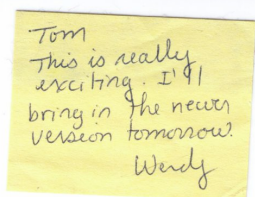 Tom
This is really
exciting. I'll
bring in the newer
version tomorrow.
Wendy